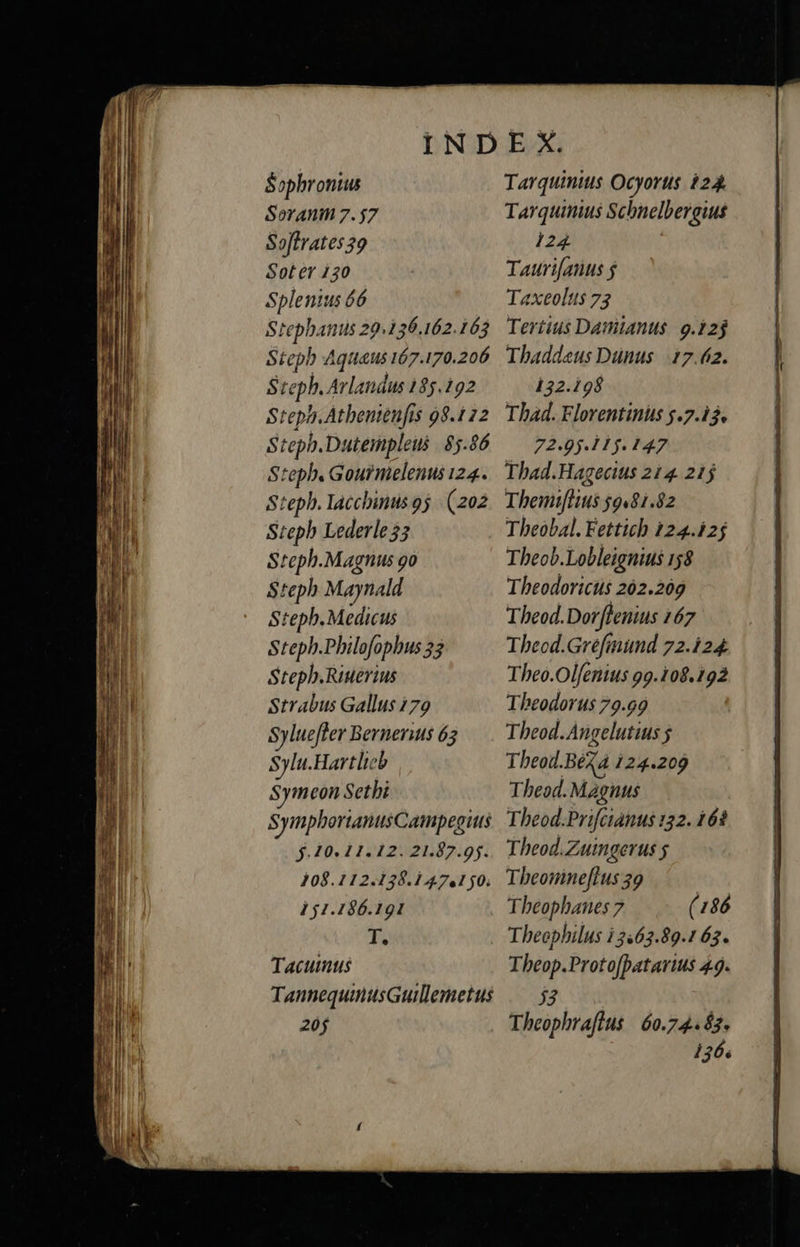 INDEX.
Sophronius
Soranm 7.57
Soſtrates 39
Soter 130
Splenius 66
Stephanus 29.136.162.163
Steph Aquæus 167.170.206
Steph. Arlandus 185.192
Steph. Athenienſis 98.112
Steph. Dutempleus 85.86
Steph. Gourmelenus 124.
Steph. Iacchinus 95 (202
Steph Lederle 33
Steph. Magnus 90
Steph Maynald
Steph. Medicus
Steph. Philoſophus 33
Steph. Riuerius
Strabus Gallus 179
Sylueſter Bernerius 63
Sylu. Hartlieb
Symeon Sethi
Symphorianus Campegius
5.10.11.12.21.87.95.
108.112.138.147.150.
151.186.191
T.
Tacuinus
Tannequinus Guillemetus
205
Tarquinius Ocyorus 124
Tarquinius Schnelbergius
124
Tauriſanus 5
Taxeolus 73
Tertius Damianus 9.125
Thaddæus Dunus 17.62.
132.198
Thad. Florentinus 5.7.13.
72.95.115.147
Thad. Hagecius 214.215
Themiſtius 59.81.82
Theobal. Fettich 124.125
Theob. Lobleignius 158
Theodoricus 202.209
Theod. Dorſtenius 167
Theod. Greſmund 72.124
Theo. Olſenius 99.108.192
Theodorus 79.99
Theod. Angelutius 5
Theod. Beza 124.209
Theod. Magnus
Theod. Priſcianus 132.161
Theod. Zuingerus 5
Theomneſtus 39
Theophanes 7 (186
Theophilus 13.63.89.163.
Theop. Protoſpatarius 49.
53
Theophraſtus 60.74.83.
136.